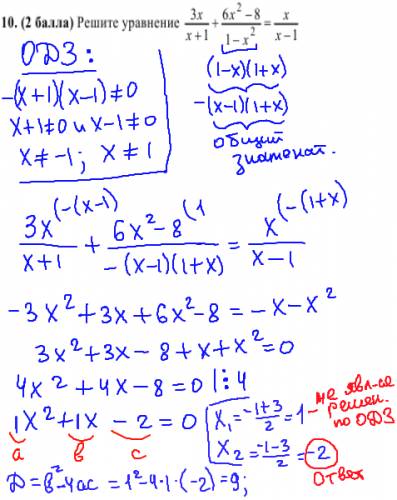 10. (2 балла) Решите уравнение 3x/(x+1) + (6x²-8)/(1-x²) = x/(x-1)
ОДЗ:
-(x+1)(x-1)≠0
x+1≠0 и x-1≠0
x≠-1; x≠1
(1-x)(1+x)
-(x-1)(1+x)
общий
знаменат.
3x^(-(x-1)/(x+1) + 6x²-8^(1/(-(x-1)(1+x)) = x^(-(1+x)/(x-1)
-3x²+3x+6x²-8=-x-x²
3x²+3x-8+x+x²=0
4x²+4x-8=0 |:4
1x²+1x-2=0
a b c
x₁=(-1+3)/2=1- не явл-ся решен. по ОДЗ
x₂=(-1-3)/2=-2
ответ
Д=в²-4ас=1²-4·1·(-2)=9;